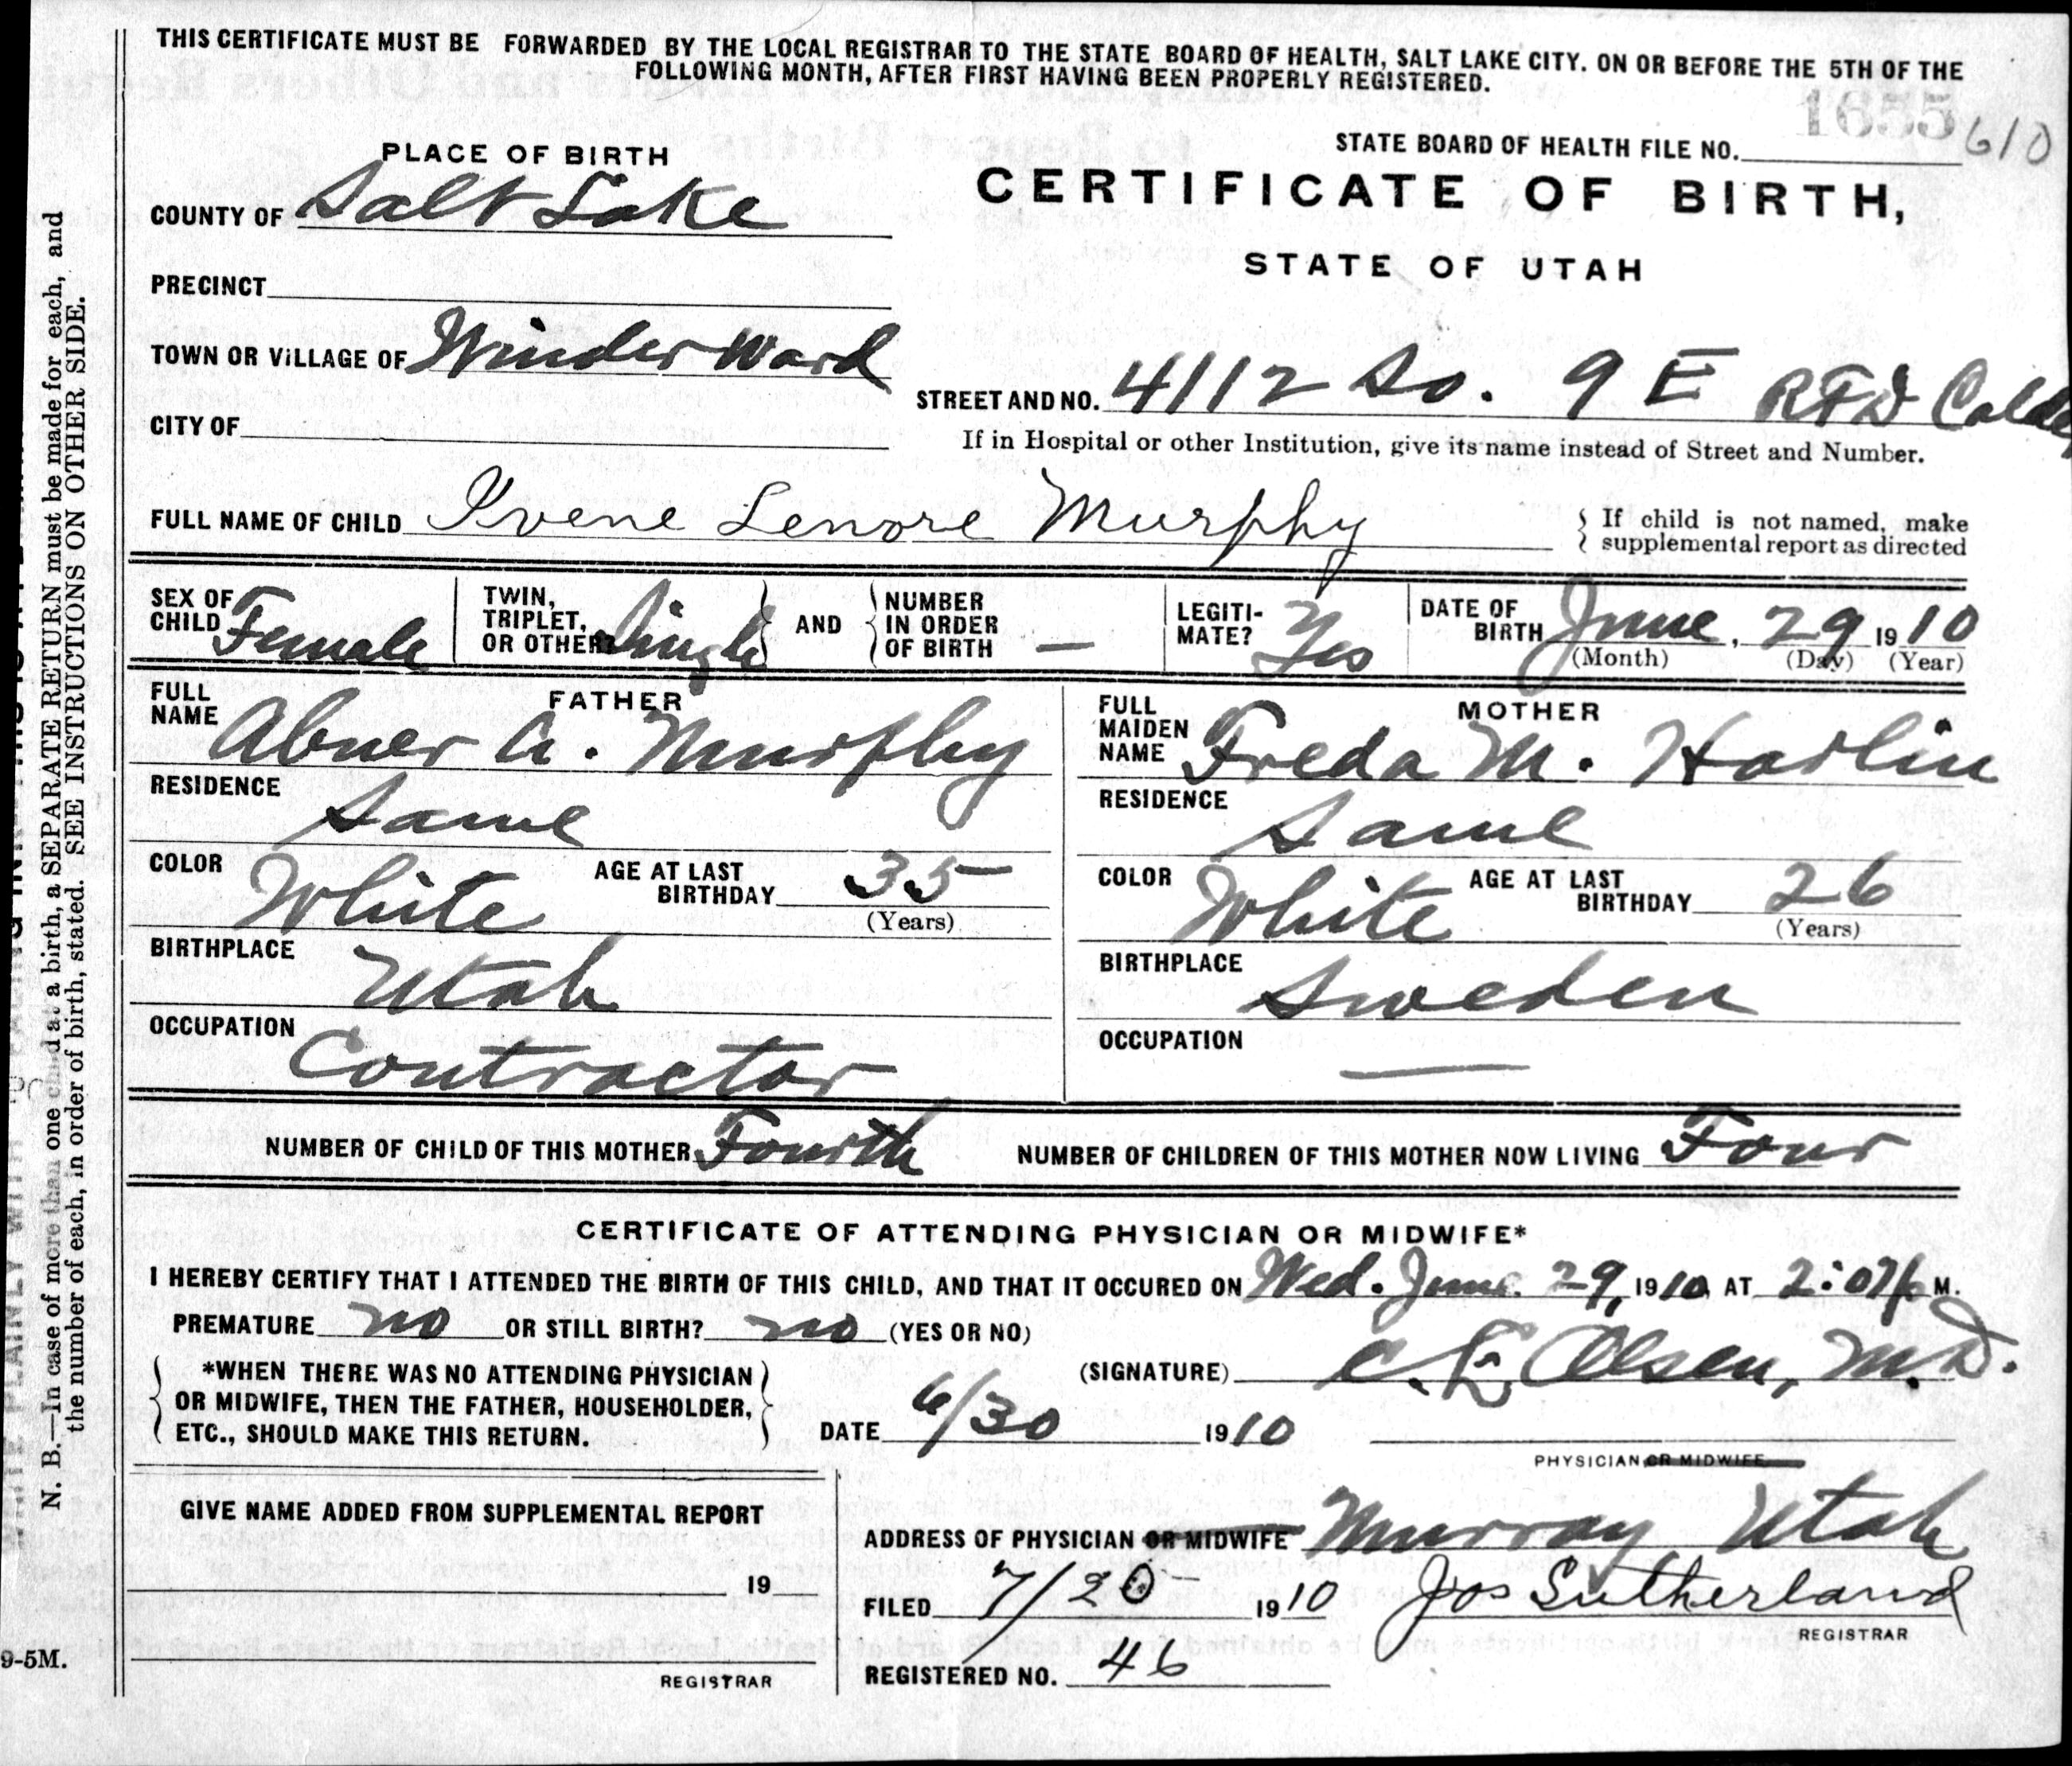 THIS CERTIFICATE MUST BE FORWARDED BY THE LOCAL REGISTRAR TO THE STATE BOARD OF HEALTH, SALT LAKE CITY. ON OR BEFORE THE 5TH OF THE
FOLLOWING MONTH, AFTER FIRST HAVING BEEN PROPERLY REGISTERED.
STATE BOARD OF HEALTH FILE NO. 1655 610
PLACE OF BIRTH
CERTIFICATE OF BIRTH,
STATE OF UTAH
COUNTY OF Salt Lake
PRECINCT
TOWN OR VILLAGE OF Winder Ward
STREET AND NO. 4112 So. 9 E RFD
CITY OF
If in Hospital or other Institution, give its name instead of Street and Number.
FULL NAME OF CHILD Ivene Lenore Murphy
If child is not named, make
supplemental report as directed
SEX OF CHILD Female
TWIN, TRIPLET, OR OTHER Single
AND
NUMBER IN ORDER OF BIRTH —
LEGITIMATE? Yes
DATE OF BIRTH June, 29 1910
(Month) (Day) (Year)
FATHER
FULL NAME Abner A. Murphy
RESIDENCE Same
COLOR White AGE AT LAST BIRTHDAY 35
(Years)
BIRTHPLACE Utah
OCCUPATION Contractor
MOTHER
FULL MAIDEN NAME Freda M. Harlin
RESIDENCE Same
COLOR White AGE AT LAST BIRTHDAY 26
(Years)
BIRTHPLACE Sweden
OCCUPATION —
NUMBER OF CHILD OF THIS MOTHER Fourth NUMBER OF CHILDREN OF THIS MOTHER NOW LIVING Four
CERTIFICATE OF ATTENDING PHYSICIAN OR MIDWIFE*
I HEREBY CERTIFY THAT I ATTENDED THE BIRTH OF THIS CHILD, AND THAT IT OCCURED ON Wed. June. 29, 1910 AT 2:07 p M.
PREMATURE no OR STILL BIRTH? no (YES OR NO)
*WHEN THERE WAS NO ATTENDING PHYSICIAN
OR MIDWIFE, THEN THE FATHER, HOUSEHOLDER,
ETC., SHOULD MAKE THIS RETURN.
(SIGNATURE) C. E. Olsen, M.D.
DATE 6/30 1910
PHYSICIAN OR MIDWIFE
GIVE NAME ADDED FROM SUPPLEMENTAL REPORT
19
REGISTRAR
ADDRESS OF PHYSICIAN OR MIDWIFE Murray Utah
FILED 7/20 1910 Jos Sutherland
REGISTRAR
REGISTERED NO. 46
N. B.—In case of more than one child at a birth, a SEPARATE RETURN must be made for each, and
the number of each, in order of birth, stated. SEE INSTRUCTIONS ON OTHER SIDE.
9-5M.